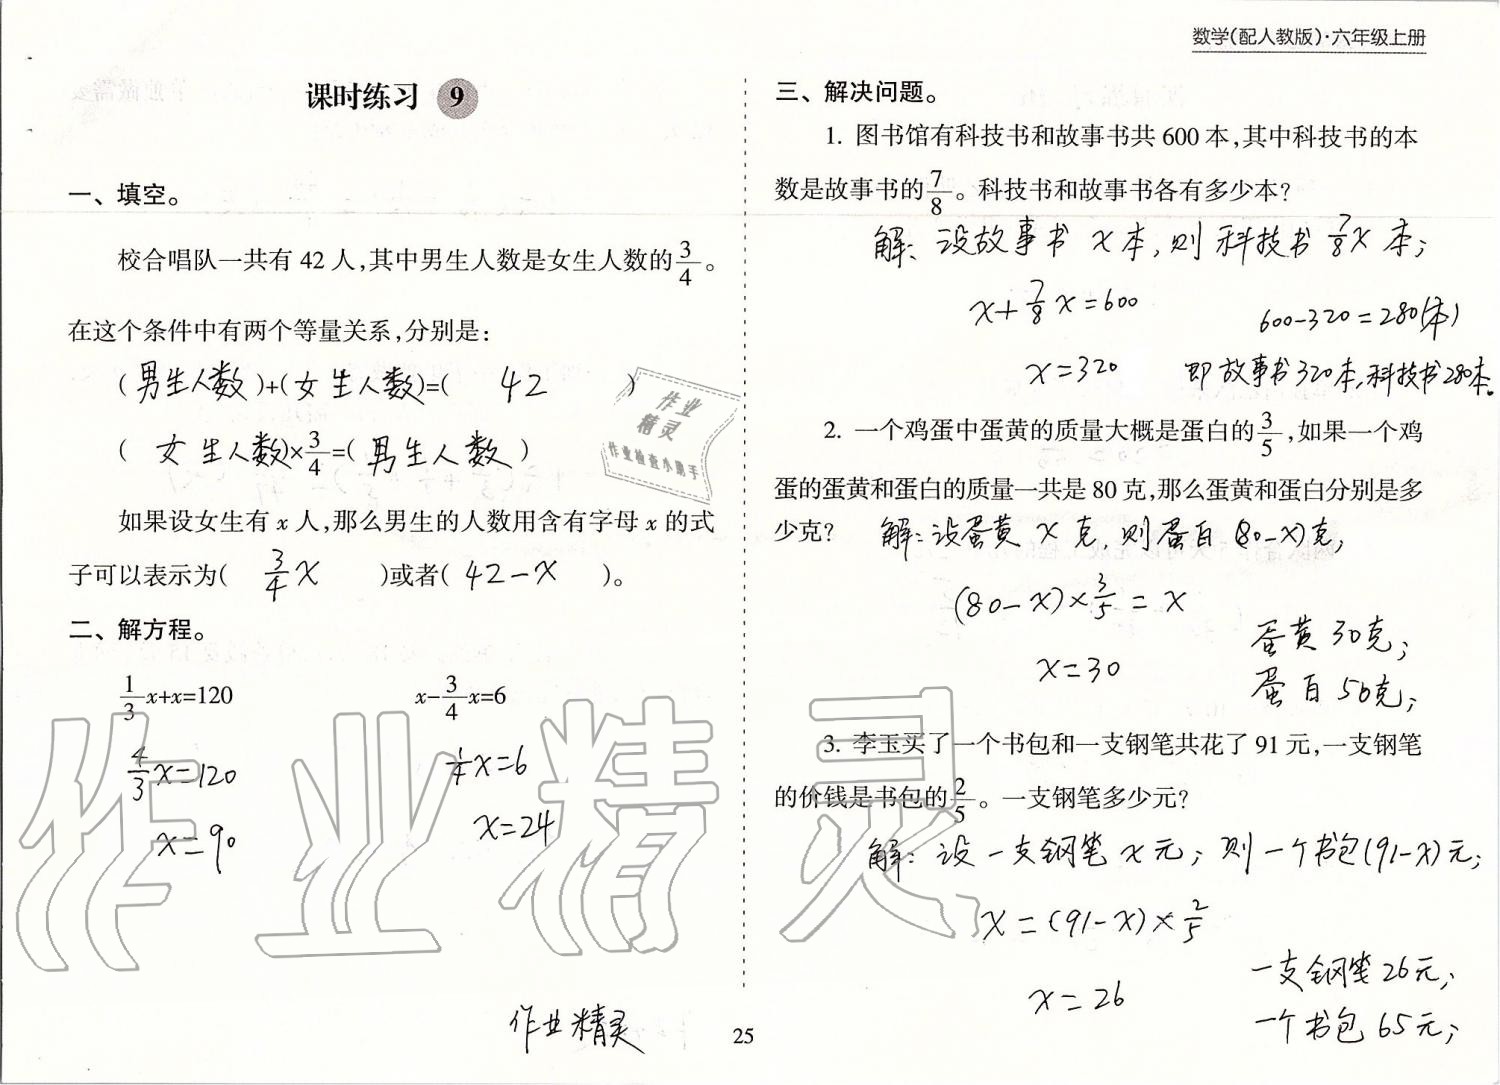 数学(配人教版)·六年级上册
课时练习 9
一、填空。
校合唱队一共有 42 人,其中男生人数是女生人数的3/4。
在这个条件中有两个等量关系,分别是:
(男生人数)+(女生人数)=( 42 )
( 女生人数)×3/4=( 男生人数 )
如果设女生有 x 人,那么男生的人数用含有字母 x 的式
子可以表示为( 3/4 x )或者( 42-x )。
二、解方程。
1/3 x+x=120
x-3/4 x=6
4/3 x=120
1/4 x=6
x=90
x=24
作业精灵
三、解决问题。
1. 图书馆有科技书和故事书共 600 本,其中科技书的本
数是故事书的7/8。科技书和故事书各有多少本?
解:设故事书 x 本,则科技书 7/8 x 本;
x+7/8 x=600
600-320=280(本)
x=320
即故事书320本,科技书280本。
2. 一个鸡蛋中蛋黄的质量大概是蛋白的3/5,如果一个鸡
蛋的蛋黄和蛋白的质量一共是 80 克,那么蛋黄和蛋白分别是多
少克?
解:设蛋黄 x 克,则蛋白(80-x)克;
(80-x)×3/5=x
x=30
蛋黄30克;
蛋白50克;
3. 李玉买了一个书包和一支钢笔共花了 91 元,一支钢笔
的价钱是书包的2/5。一支钢笔多少元?
解:设一支钢笔 x 元;则一个书包(91-x)元;
x=(91-x)×2/5
x=26
一支钢笔26元;
一个书包65元;
25
作业
精灵
作业检查小助手
作业精灵